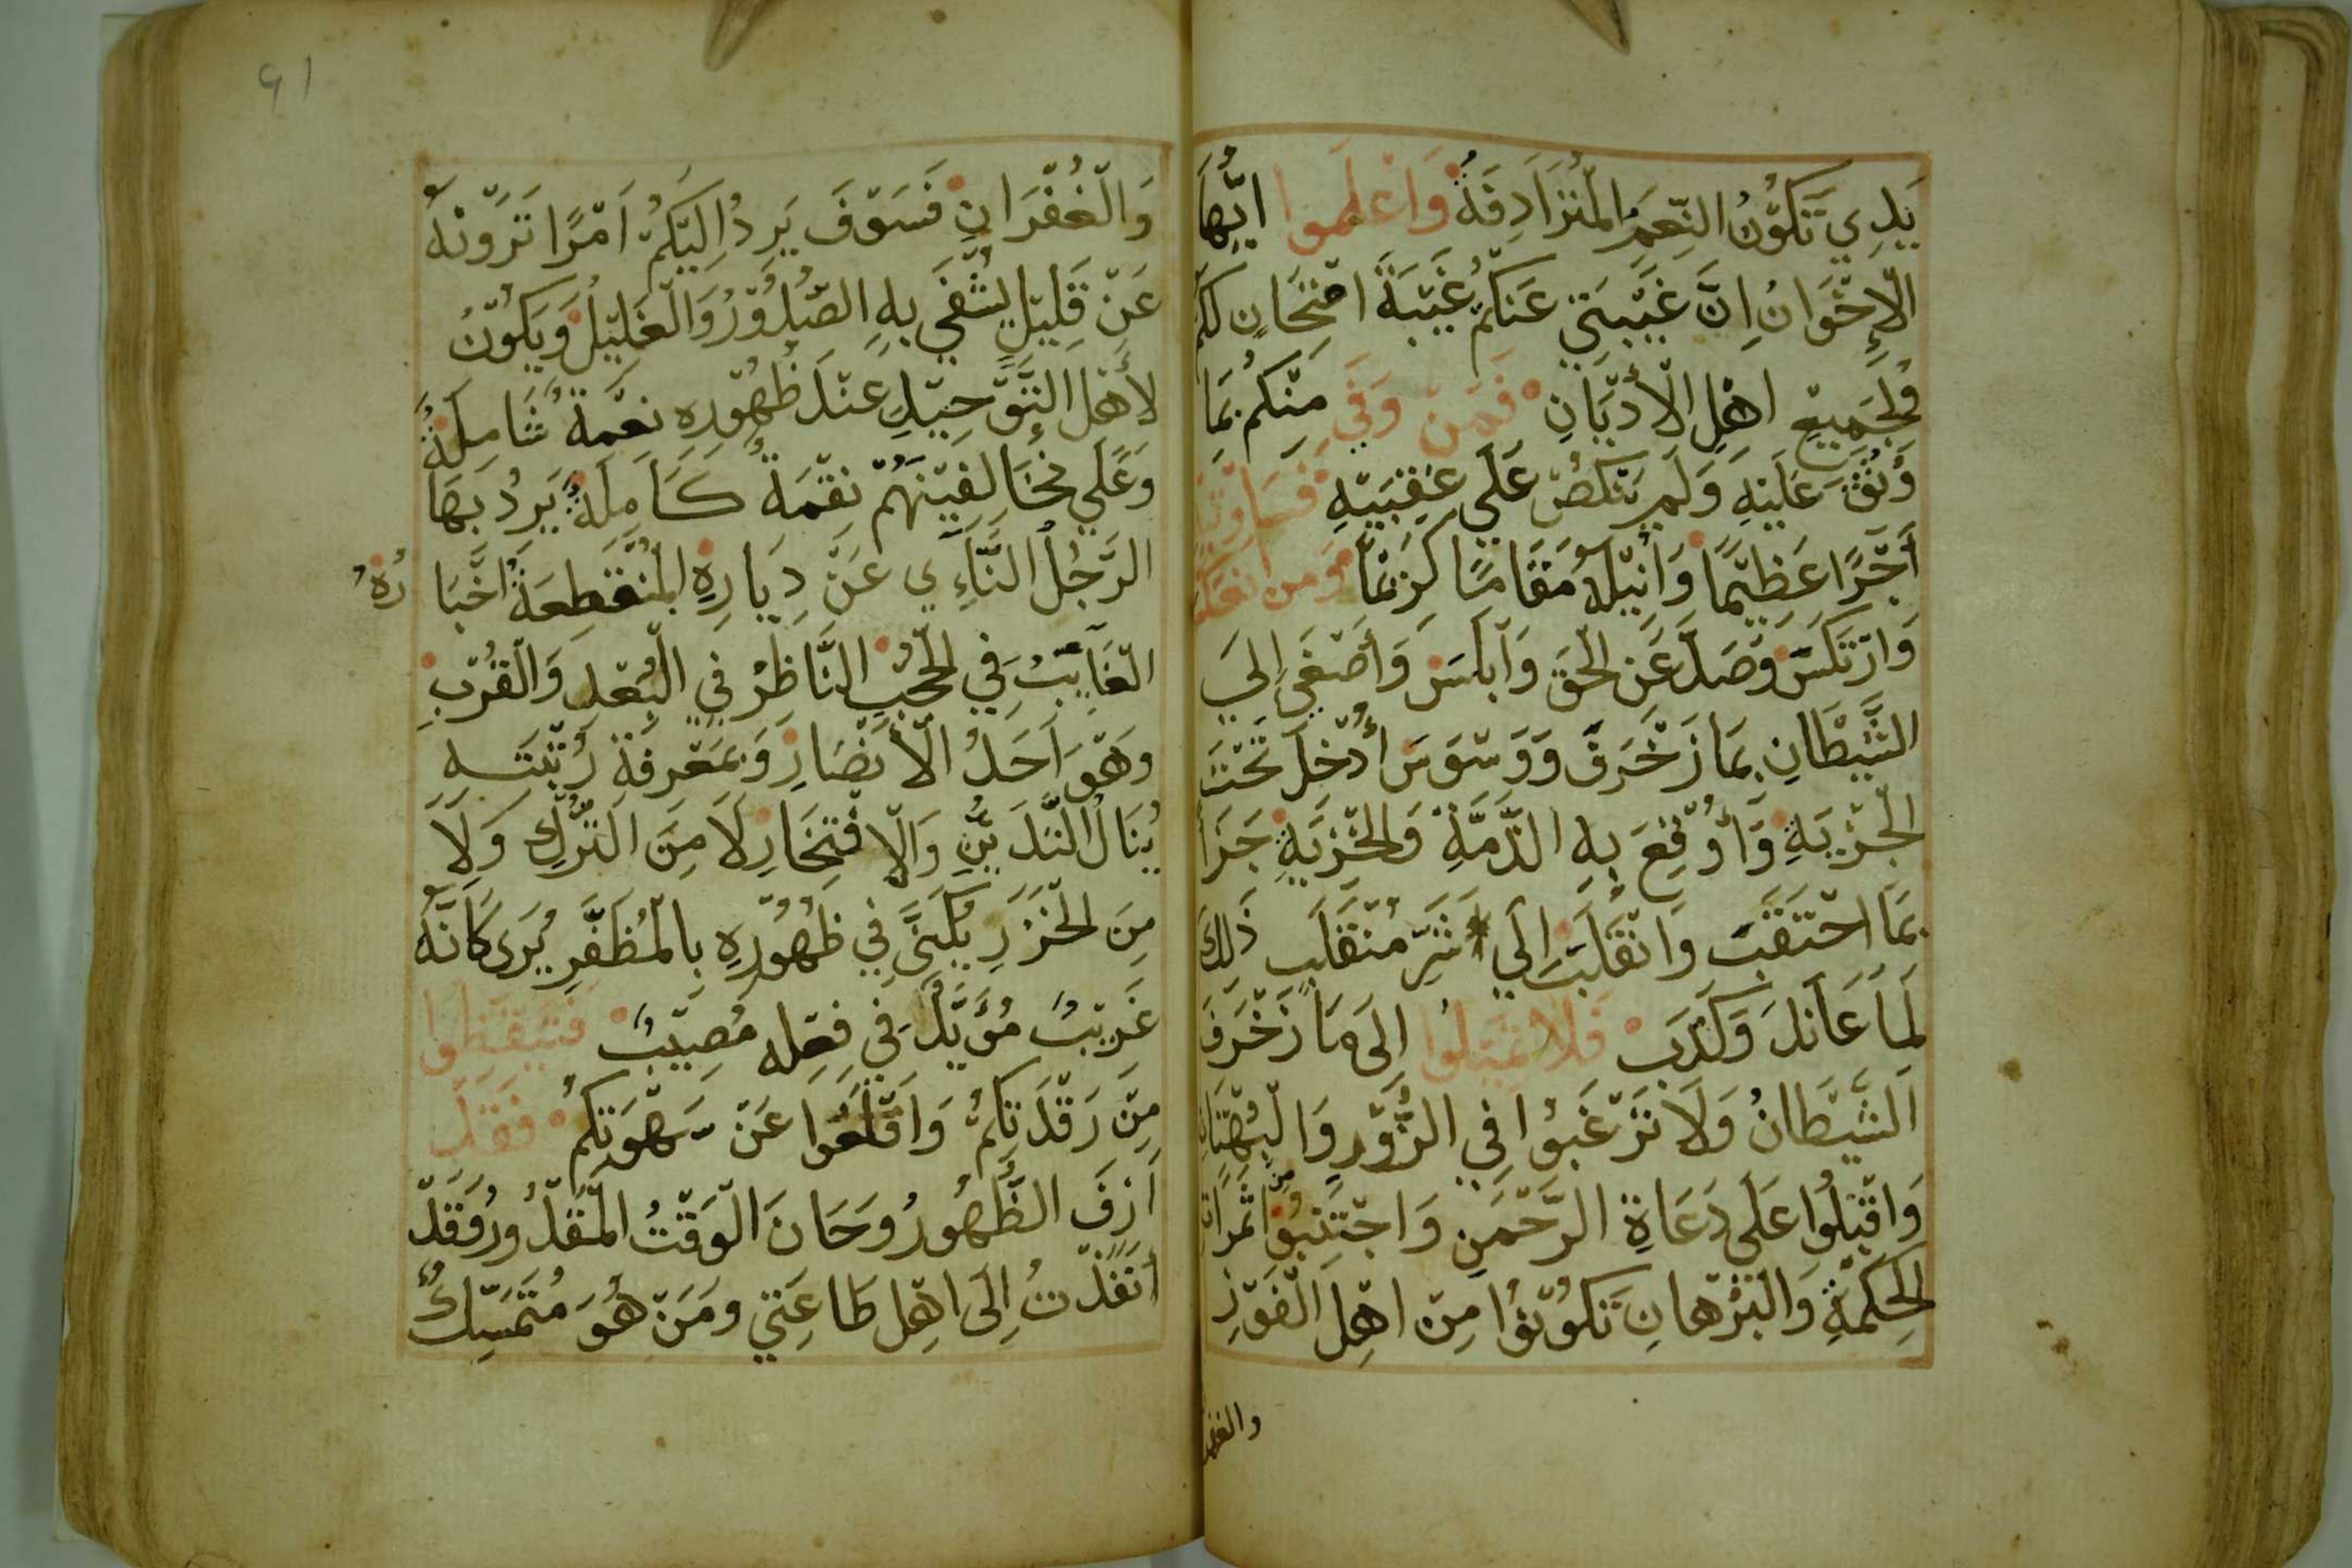 يَدِي تَكُوْنُ النِّعَمَ الْمُتَرَادِفَةُ وَاعْلَمُوا ايُّهَا
الْإِخْوَانُ اِنَّ غَيْبَتِي عَنكُمْ غَيْبَةَ امْتِحَانٍ لَكُمْ
وَلِجَمِيعِ اهْلِ الْأدْيَانِ فَمَنْ وَفَي مِنْكُمْ بِمَا
وُثِقَ عَلَيْهِ وَلَمْ يَنْكُصْ عَلَي عَقِبَيْهِ فَسَاوتيه
أَجْرًا عَظِيْمًا وَانْيِلُهُ مَقَامًا كَرِيْمًا وَمن انعكس
وَارْتَكَسَ وَصَدَّ عَنِ الْحَقِ وَابْلَسَ وَأَصْغَي إلِيَ
الشَّيْطَانِ بِمَا زَخْرَفَ وَوَسْوَسَ أُدْخِلَ تَحْتَ
الْجِزْيَةِ وَأُوْقِعَ بِهِ الذِّمَّةِ وَالْخِزْيَةِ جَزَا
بِمَا احْتَقَبَ وَانْقَلَبَ إلَي شَرِّ مُنْقَلَبٍ ذَلِكَ
لَمَا عَانَدَ وَكَذَبَ فَلا تميلُوا الَى مَا زَخْرَفَ
الشَّيْطَانُ وَلَا تَرْغَبُوا فِي الزُّوْرِ وَالْبُهْتَانِ
وَاقْبِلُوا عَلَى دَعَاةِ الرَّحْمَنِ وَاجْتَنِبُوا مِنْ ثَمَرَاتِ
الْحِكْمَةِ وَالْبُرْهانِ تَكُوْنُوْا مِنْ اهْلِ الْفَوْزِ
والغفر
91
وَالْغُفْرَانِ فَسَوْفَ يَرِدُ الَيْكُمْ اَمْرًا تَرَوْنَهُ
عَنْ قَلِيْلٍ يُشْفَي بِهِ الصُّدُوْرُ وَالْغَلِيْلُ وَيَكُوْنُ
لأَهْلِ التَّوْحِيْدِ عِنْدَ ظُهُوْرِهِ نِعْمَةٌ شَامِلَةٌ
وَعَلَي مُخَالِفِيْنَهُمْ نِقْمَةٌ كَامِلَةٌ يَرِدُ بَهَا
الرَّجُلُ النَّاءِي عَنْ دِيَارِهِ الْمُنْقَطِعَةُ اخْبَارُهُ
الْغَايِبُ فِي الْحُجُبِ النَّاظِرُ فِي الْبُعْدِ وَالْقُرْبِ
وَهْوَ اَحَدُ الْأَنْصَارِ وَبِمَعْرِفَةِ رُتْبَتِهِ
يُنَالُ التَّدَيُّنِ وَالْاِفْتِخَارِ لَا مِنَ التُّرْكِ وَلَا
مِنَ الْخَزَرِ يُكَنَّي فِي ظُهُوْرِهِ بِالْمُظَفَّرِ يُرَى كَانَّهُ
غَرِيْبُ مُؤَيَّدٌ فِي فِعْلِه مُصِيْبٌ فَتَيَقَّظُوا
مِنْ رَقْدَتِكُمْ وَاقْلَعُوا عَنْ سَهْوَتِكُمْ فَقَدْ
اَزِفَ الظُّهُورُ وَحَانَ الْوَقْتُ الْمَقْدُورُ وَقَدْ
انْفَذْتُ إلَى اهْلِ طَاعَتِي وَمَنْ هُوَ مُتَمَسِّكٌ